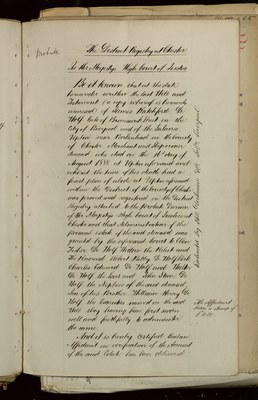 Probate
The District Registry at Chester
In Her Majestys High Court of Justice
Be it known that at the date
hereunder written the last Will and
Testament (a copy whereof is hereunto
annexed) of James Ratchford De
Wolf late of Brunswick Street in the
City of Liverpool and of
near Birkenhead in the County
of Chester Merchant and Shipowner
deceased who died on the 14th day of
August 1888 at aforesaid and
who at the time of his death had a
fixed place of abode at aforesaid
within the District of the County of Chester
was proved and registered in the District
Registry attached to the Probate Division
of Her Majestys High Court of Justice at
Chester and that Administration of the
personal estate of the said deceased was
granted by the aforesaid Court to
De Wolf the Relict and
the Reverend De Wolf Clerk
Charles Edward De Wolf and
De Wolf the Sons and John Starr De
Wolf the Nephew of the said deceased,
Son of his Brother Thomas Henry De
Wolf the Executors named in the said
Will they having been first sworn
well and faithfully to administer
the same.
And it is hereby Certified that an
Affidavit in verification of the Amount
of the said Estate has been delivered
Extracted by
Liverpool
The Affidavit
bears a stamp of